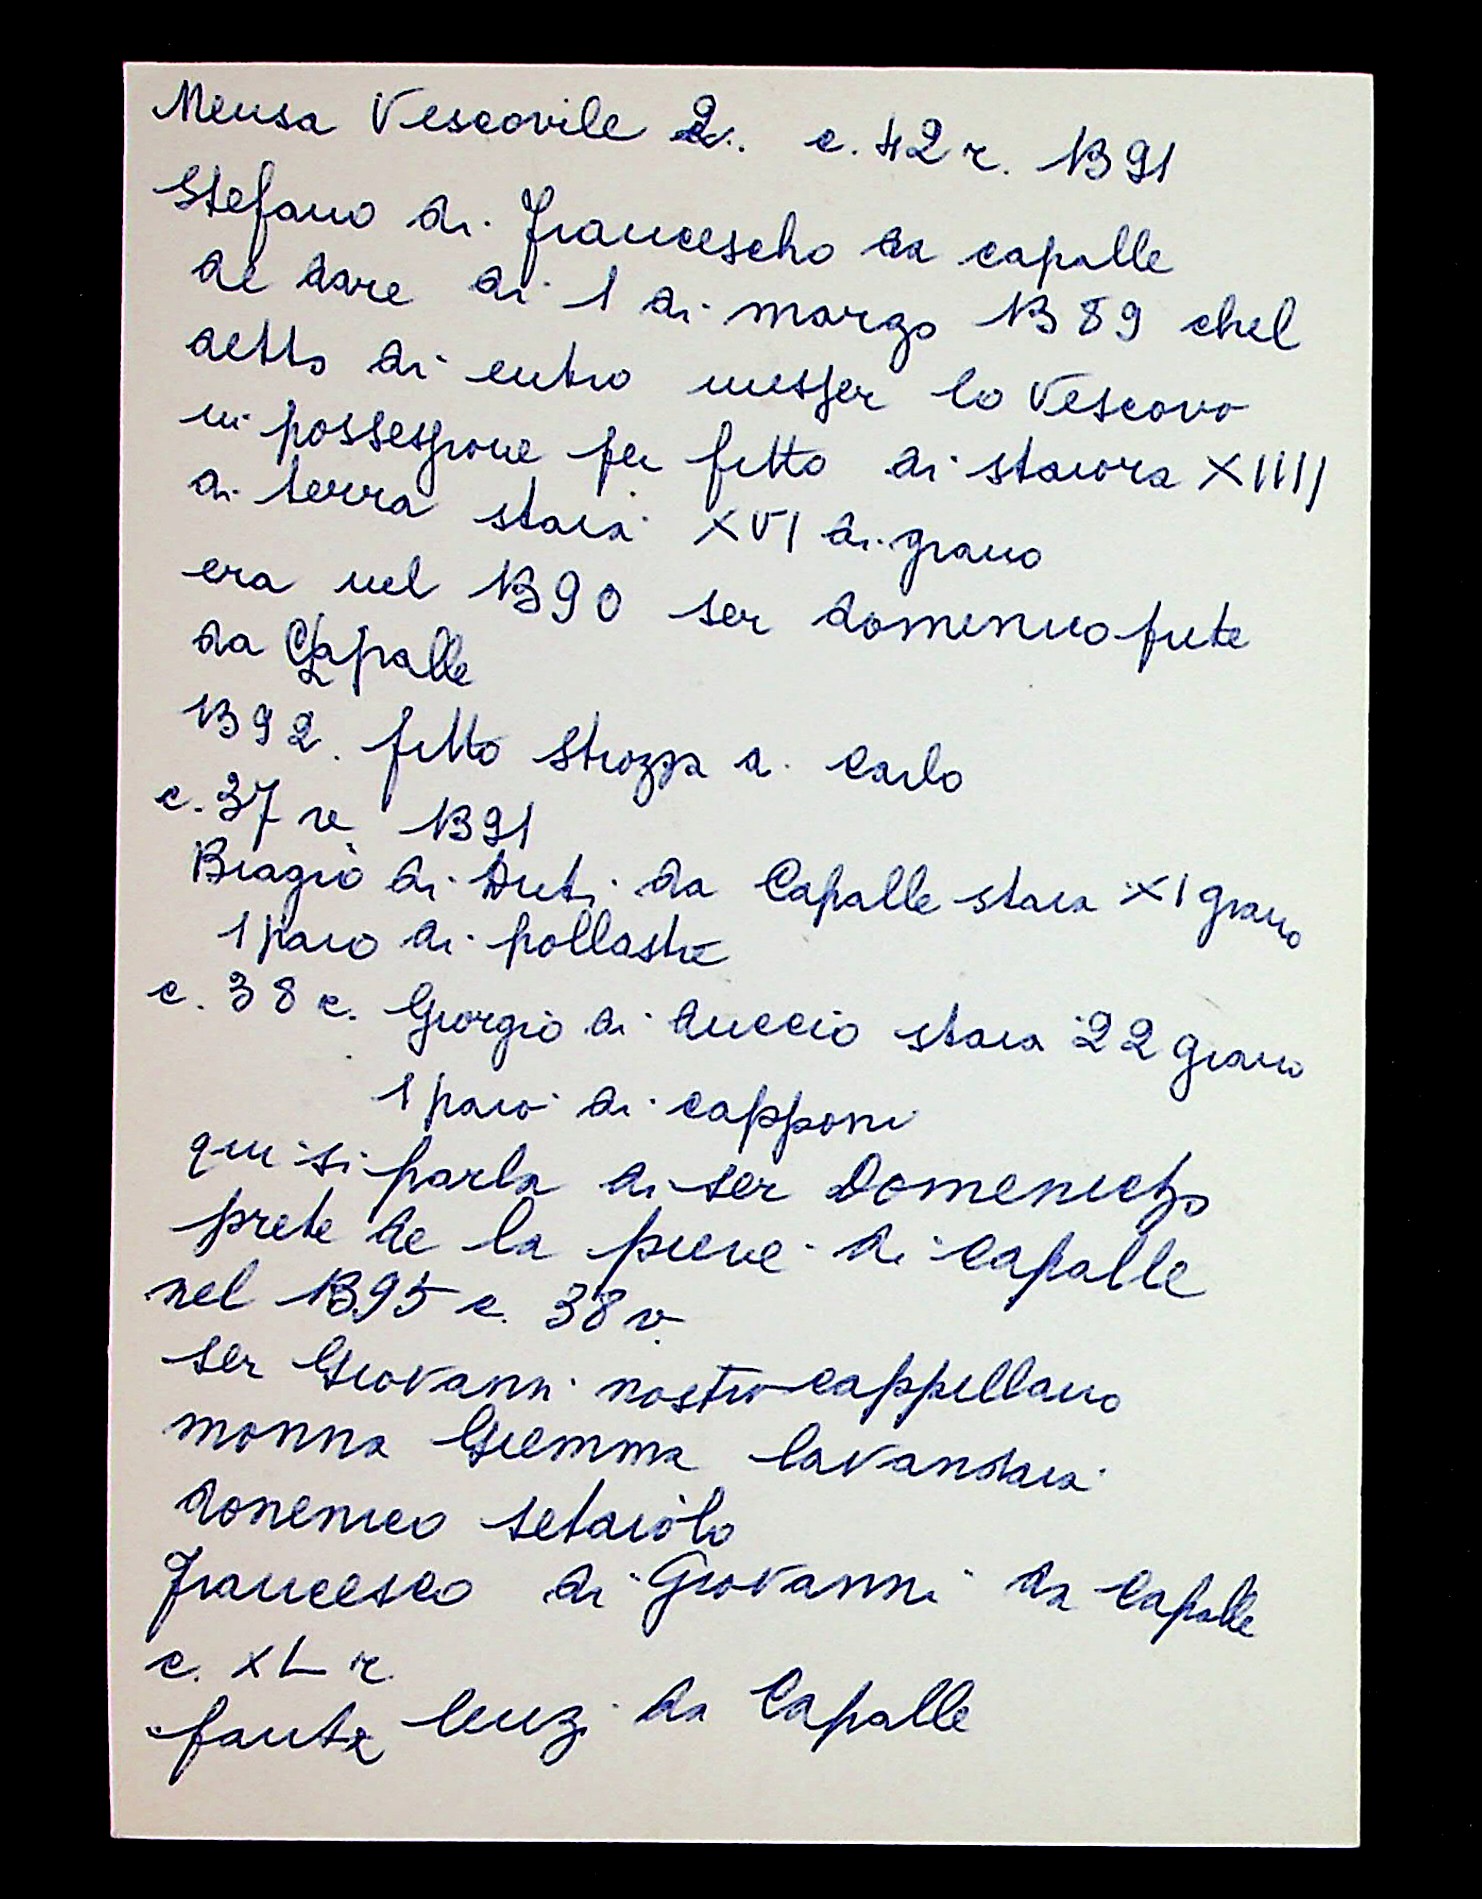 Mensa Vescovile 2. c. 42 r. 1391
Stefano di Francescho da capalle
de dare di 1 di marzo 1389 chel
detto di entro messer lo Vescovo
in possessione per fitto di staiora XIIII
di terra staia XVI di grano
era nel 1390 ser domenico prete
da Capalle
1392. fitto Strozza di Carlo
c. 37 r 1391
Biagio di Duti da Capalle staia XI grano
1 paio di pollastre
c. 38 r. Giorgio di duccio staia 22 grano
1 paio di capponi
qui si parla di ser Domenicho
prete de la pieve di Capalle
nel 1395 c. 38 v.
ser Giovanni nostro cappellano
monna Giemma lavandaia
domenico setaiolo
Francesco di Giovanni da Capalle
c. XL r
fante lenzi da Capalle